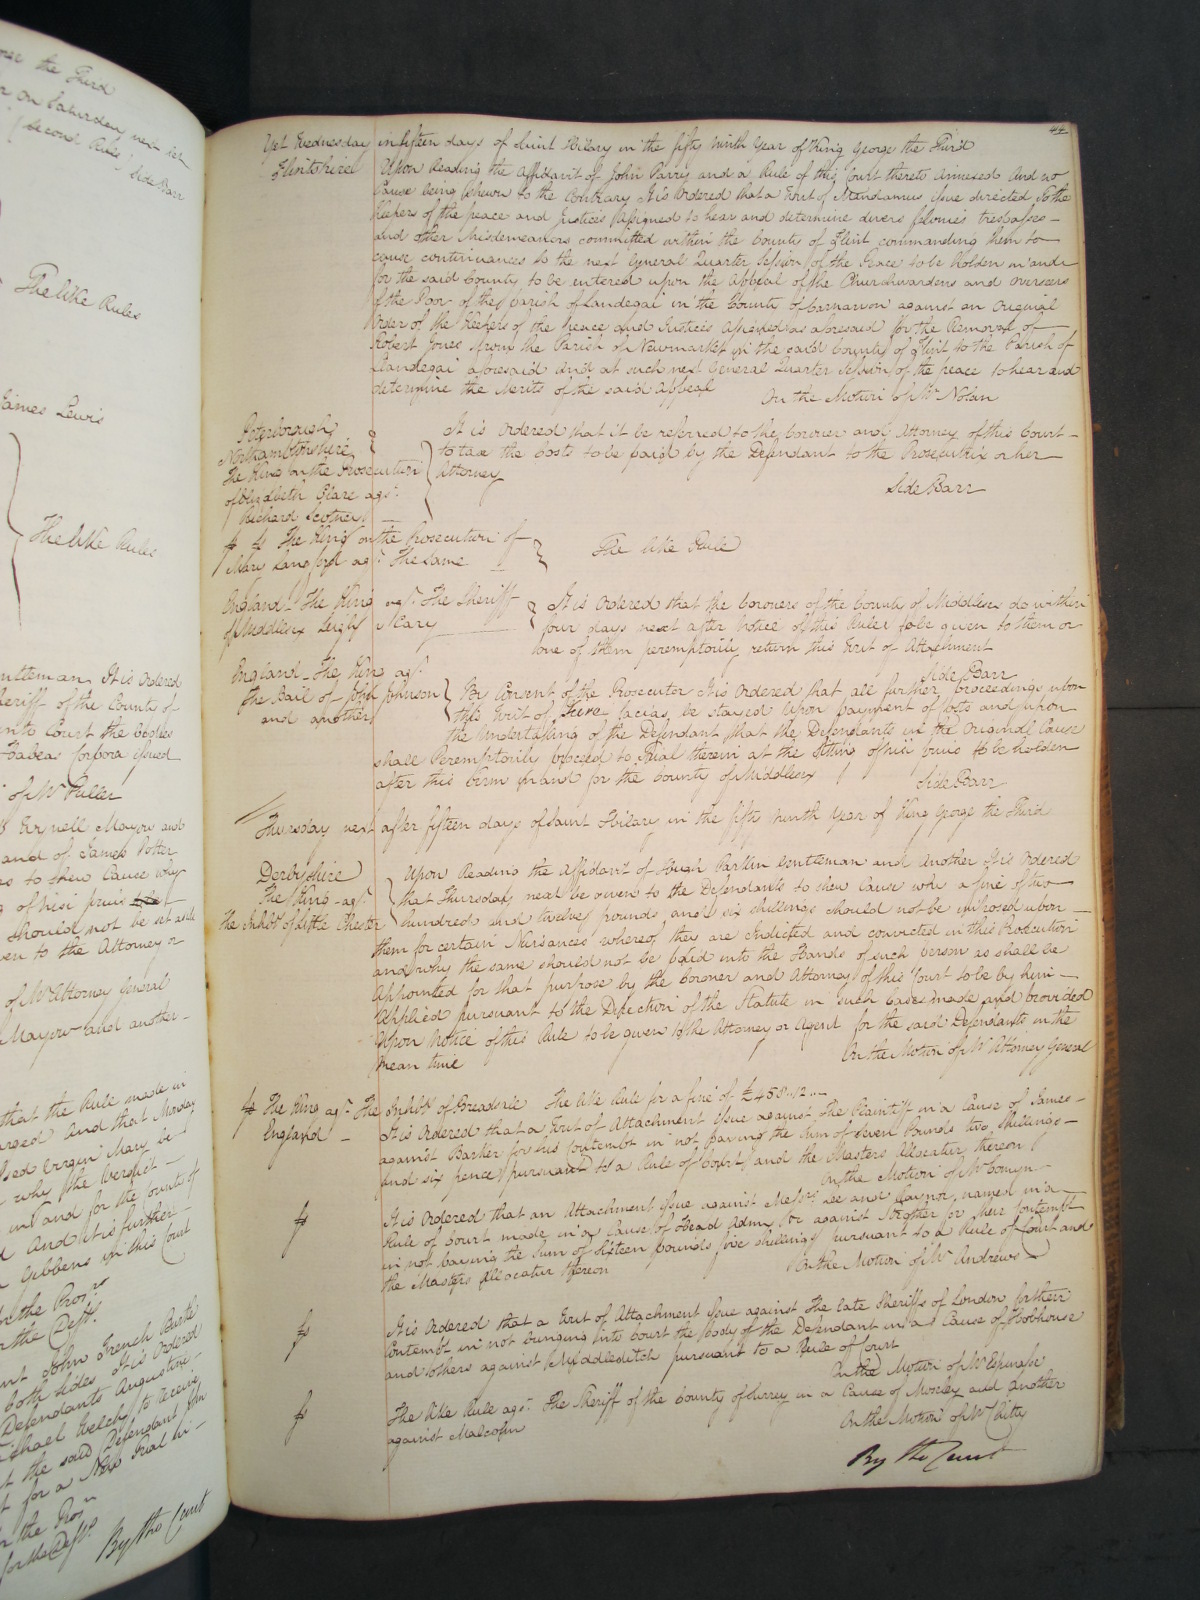 ner the Third
r on Saturday next
second Rule Side Barr
The like Rules
James Lewis
The like Rules
entleman It is Ordered
Sheriff of the County of
into Court the bodies
Habeas Corpora issued
of Mr Fuller
Mayow and
and of James Potter
to shew Cause why
of nisi prius
should not be set aside
en to the Attorney or
of Mr Attorney General
Mayow and another
that the Rule made in
arged And that Monday
ssed Virgin Mary be
why the verdict
in and for the County of
And it is further
Gibbens in this Court
the Pros.r
the Deft.
John French Burke
both sides It is Ordered
Defendants Augustine
Michael Welch to receive
the said Defendant John
for a New Trial
the Pros.r
for the Deft.
By the Court
44
Yet Wednesday in fifteen days of Saint Hilary in the fifty ninth Year of King George the Third
Flintshire Upon Reading the Affidavit of John Parry and a Rule of this Court thereto Annexed And no
Cause being shewn to the Contrary It is Ordered that a Writ of Mandamus issue directed To the
Keepers of the peace and Justices Assigned to hear and determine divers felonies trespasses
and other Misdemeanors committed within the County of Flint commanding them to
cause continuances to the next General Quarter Session of the Peace to be holden in and
for the said County to be entered upon the Appeal of the Churchwardens and overseers
of the Poor of the parish of Landegai in the County of Carnarvon against an Original
Order of the Keepers of the peace and Justices Assigned as aforesaid for the Removal of
Robert Jones from the Parish of Newmarket in the said County of Flint to the Parish of
Llandegai aforesaid And at such next General Quarter Session of the peace to hear and
determine the Merits of the said Appeal On the Motion of Mr Nolan
Peterborough
Northamptonshire
The King on the Prosecution
of Elizabeth Clare agst.
Richard Scotney
It is Ordered that it be referred to the Coroner and Attorney of this Court
to tax the Costs to be paid by the Defendant to the Prosecutrix or her
Attorney
Side Barr
The King on the Prosecution of
Mary Langford agt. The Same
The like Rule
England The King agst. The Sheriff
of Middlesex Leigh Neary
It is Ordered that the Coroners of the County of Middlesex do within
four days next after Notice of this Rule to be given to them or
one of them peremptorily return this Writ of Attachment
Side Barr
England The King agt.
the Bail of John Johnson
and another
By Consent of the Prosecutor It is Ordered that all further proceedings upon
this Writ of Fiere facias be stayed Upon payment of Costs and upon
the Undertaking of the Defendant that the Defendants in the Original Cause
shall Peremptorily proceed to Trial therein at the Sitting of nisi prius to be holden
after this Term in and for the County of Middlesex Side Barr
Thursday next after fifteen days of Saint Hilary in the fifty ninth Year of King George the Third
Derbyshire
The King agt.
the Inhabts of Little Chester
Upon Reading the Affidavit of Hugh Parkin Gentleman and Another It is Ordered
that Thursday next be given to the Defendants to shew Cause why a fine of two
hundred and twelve pounds and six shillings should not be imposed upon
them for certain Nuisances whereof they are Indicted and convicted in this Prosecution
and why the same should not be paid into the Hands of such person as shall be
Appointed for that purpose by the Coroner and Attorney of this Court to be by him
Applied pursuant to the Direction of the Statute in such Cases made and provided
Upon Notice of this Rule to be given to the Attorney or Agent for the said Defendants in the
mean time On the Motion of Mr Attorney General
The King agt. The Inhabts of Breadsale The like Rule for a fine of £458..12..
England It is Ordered that a Writ of Attachment issue against The Plaintiff in a Cause of James
against Barker for his Contempt in not paying the Sum of Seven Pounds two Shillings
and six pence pursuant to a Rule of Court and the Masters Allocatur thereon
On the Motion of Mr Comyn
It is Ordered that an Attachment issue against Messrs. Lee and named in a
Rule of Court made in a Cause of Head Admr. &c against Strother for their Contempt
in not paying the Sum of Sixteen pounds five shillings pursuant to a Rule of Court and
the Masters Allocatur thereon On the Motion of Mr Andrews
It is Ordered that a Writ of Attachment issue against The late Sheriffs of London for their
Contempt in not bringing into Court the body of the Defendant in a Cause of Hobhouse
and others against Middleditch pursuant to a Rule of Court
On the Motion of Mr Espinasse
The like Rule agst. The Sheriff of the County of Surrey in a Cause of Moxley and Another
against Malcolm On the Motion of Mr Chitty
By the Court